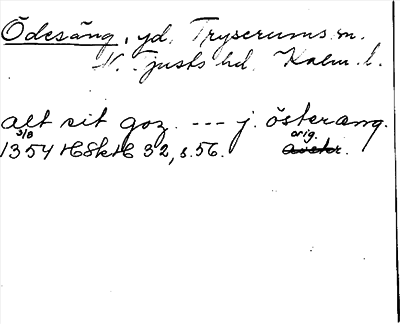 Ödesäng, yd. Tryserums sn.
N. Tjusts hd. Kalm. l.
alt sit goz --- j. österæng.
3/8 orig.
1354 HSkH 32, s. 56. avskr.